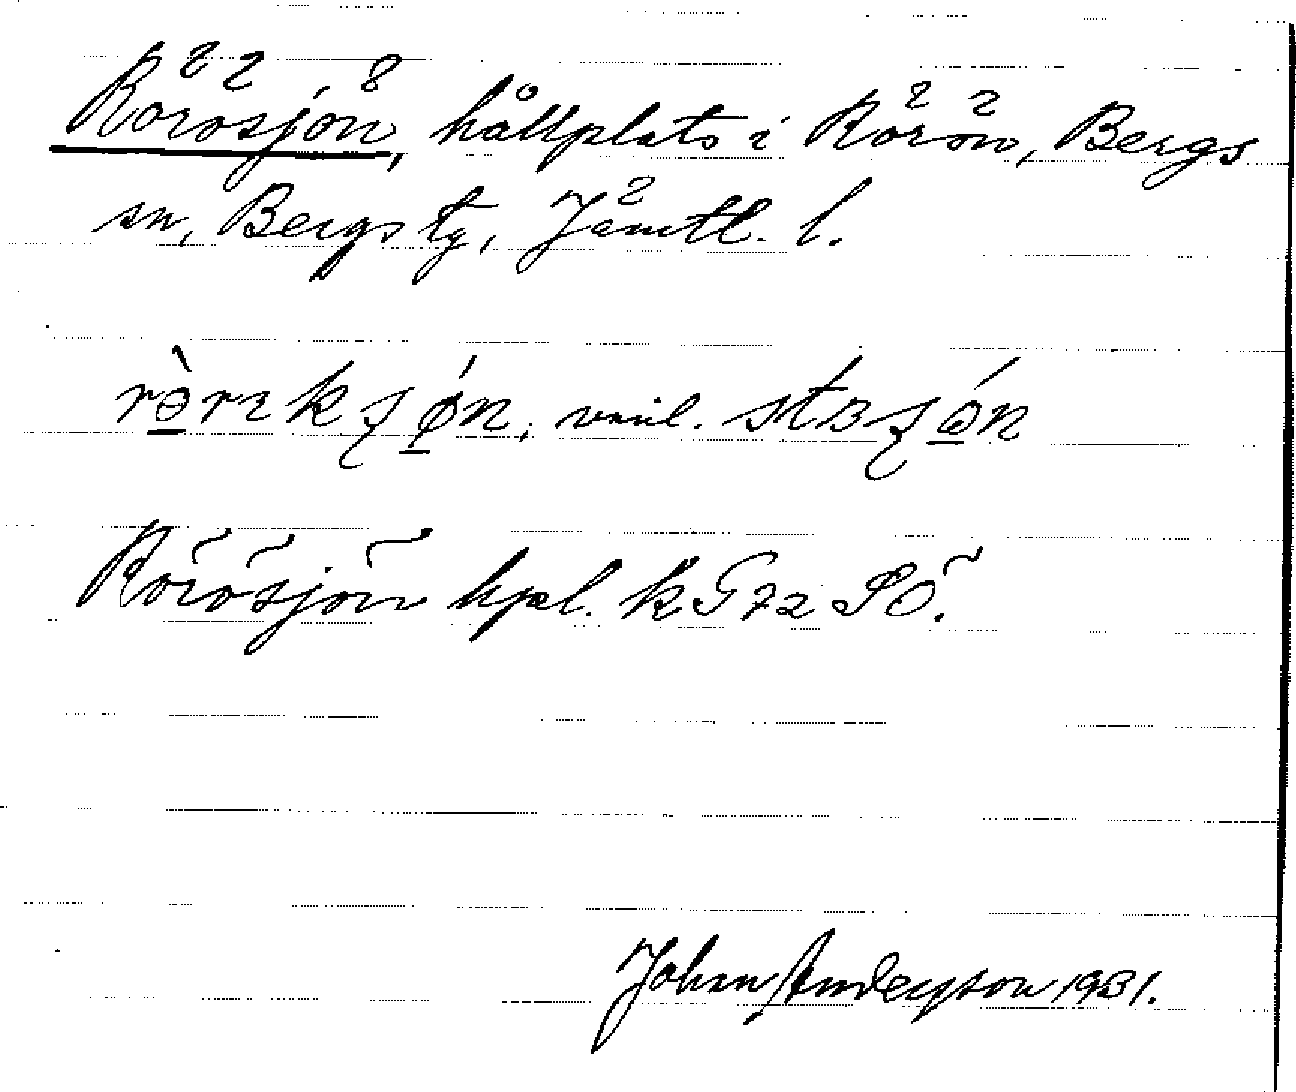 Rörösjön, hållplats i Rörön, Bergs
sn, Bergs tg, Jämtl. l.
rə̀rɛkʂǿn, vanl. stɜʂǿn
Rörösjön hpl. kG72 SÖ.
Johan Anderson 1931.